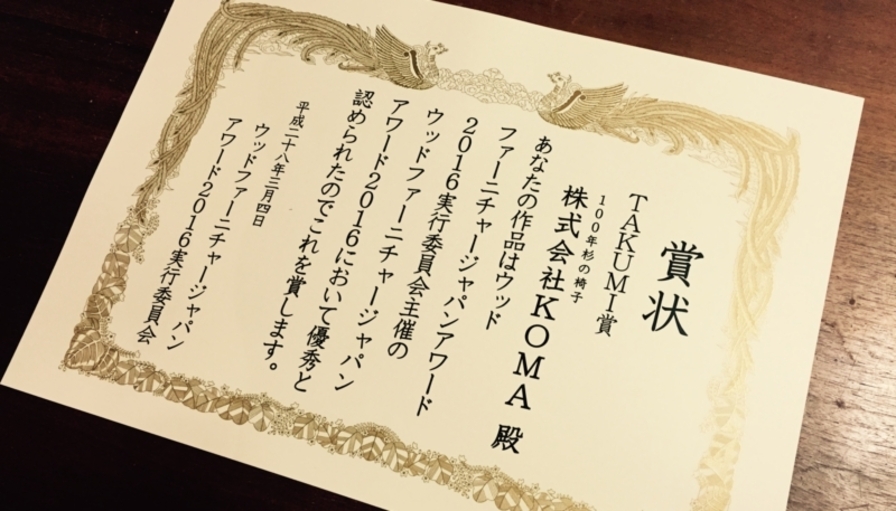 賞状
TAKUMI賞
100年杉の椅子
株式会社KOMA 殿
あなたの作品はウッド
ファーニチャージャパンアワード
2016実行委員会主催の
ウッドファーニチャージャパン
アワード2016において優秀と
認められたのでこれを賞します。
平成二十八年三月四日
ウッドファーニチャージャパン
アワード2016実行委員会